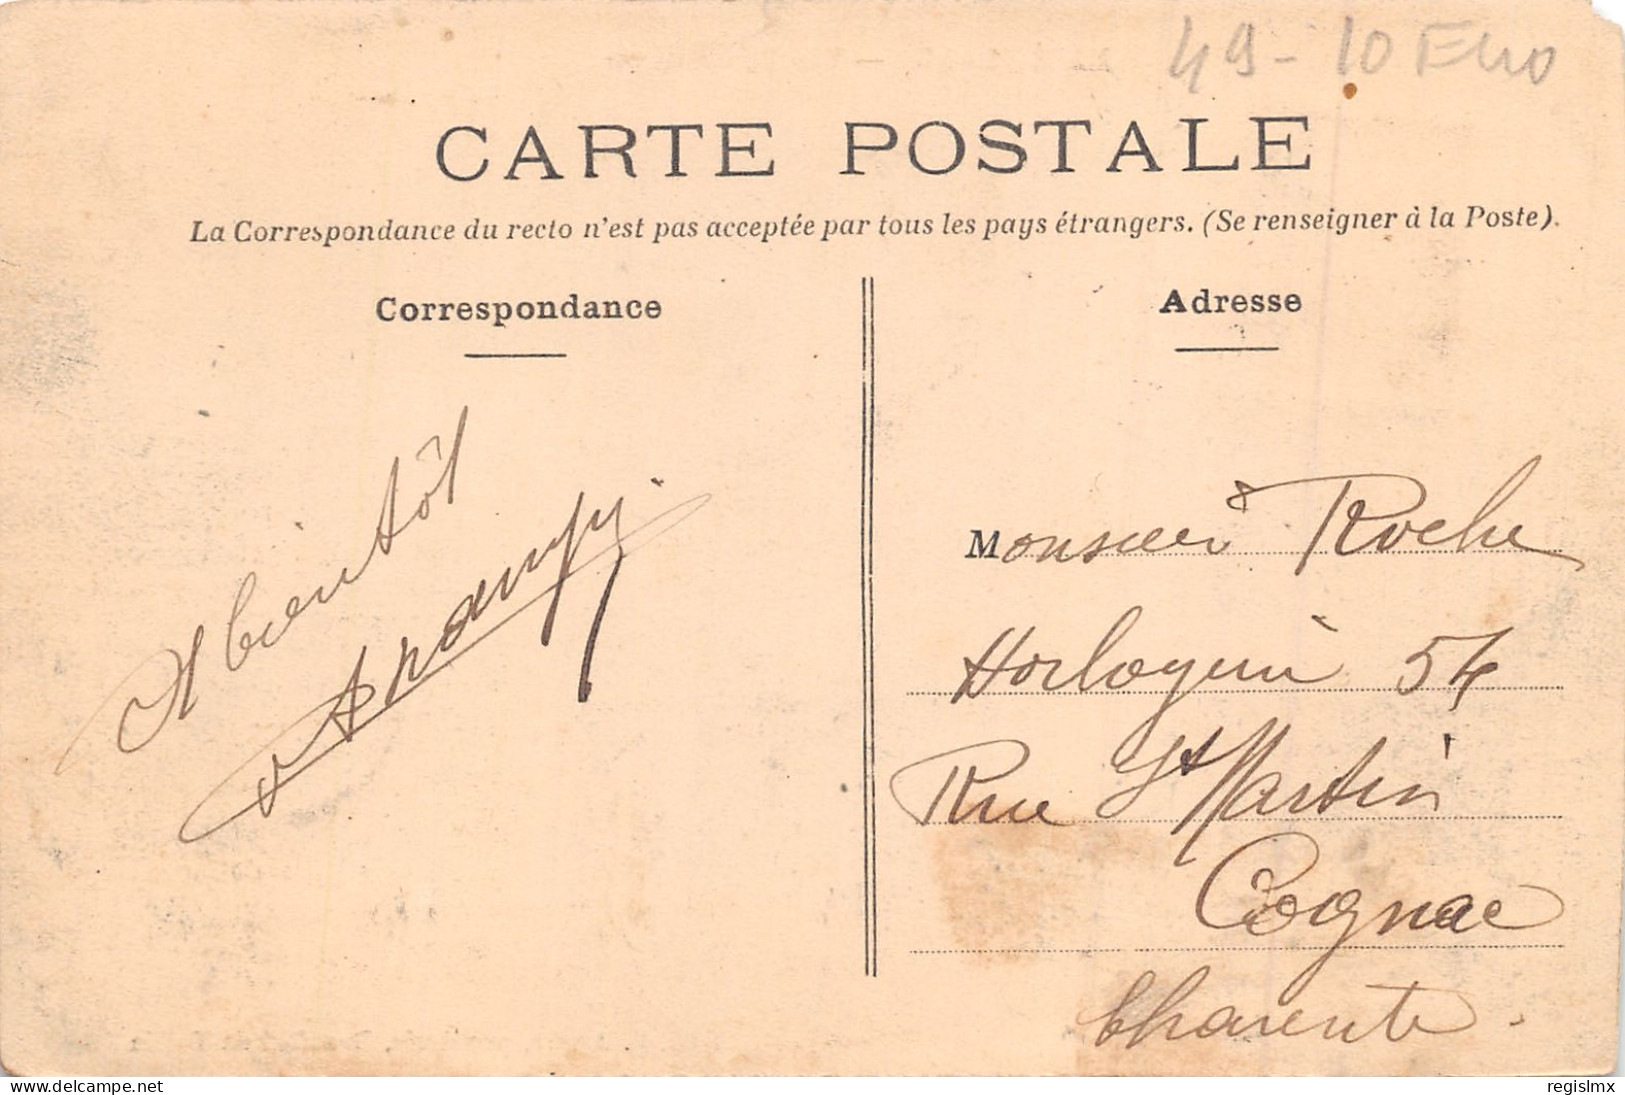 49 - 10 Euro
CARTE POSTALE
La Correspondance du recto n'est pas acceptée par tous les pays étrangers. (Se renseigner à la Poste).
Correspondance
Adresse
A bientôt
Monsieur Roche
Horlogerie 54
Rue St Martin
Cognac
Charente.
delcampe.net
regislmx